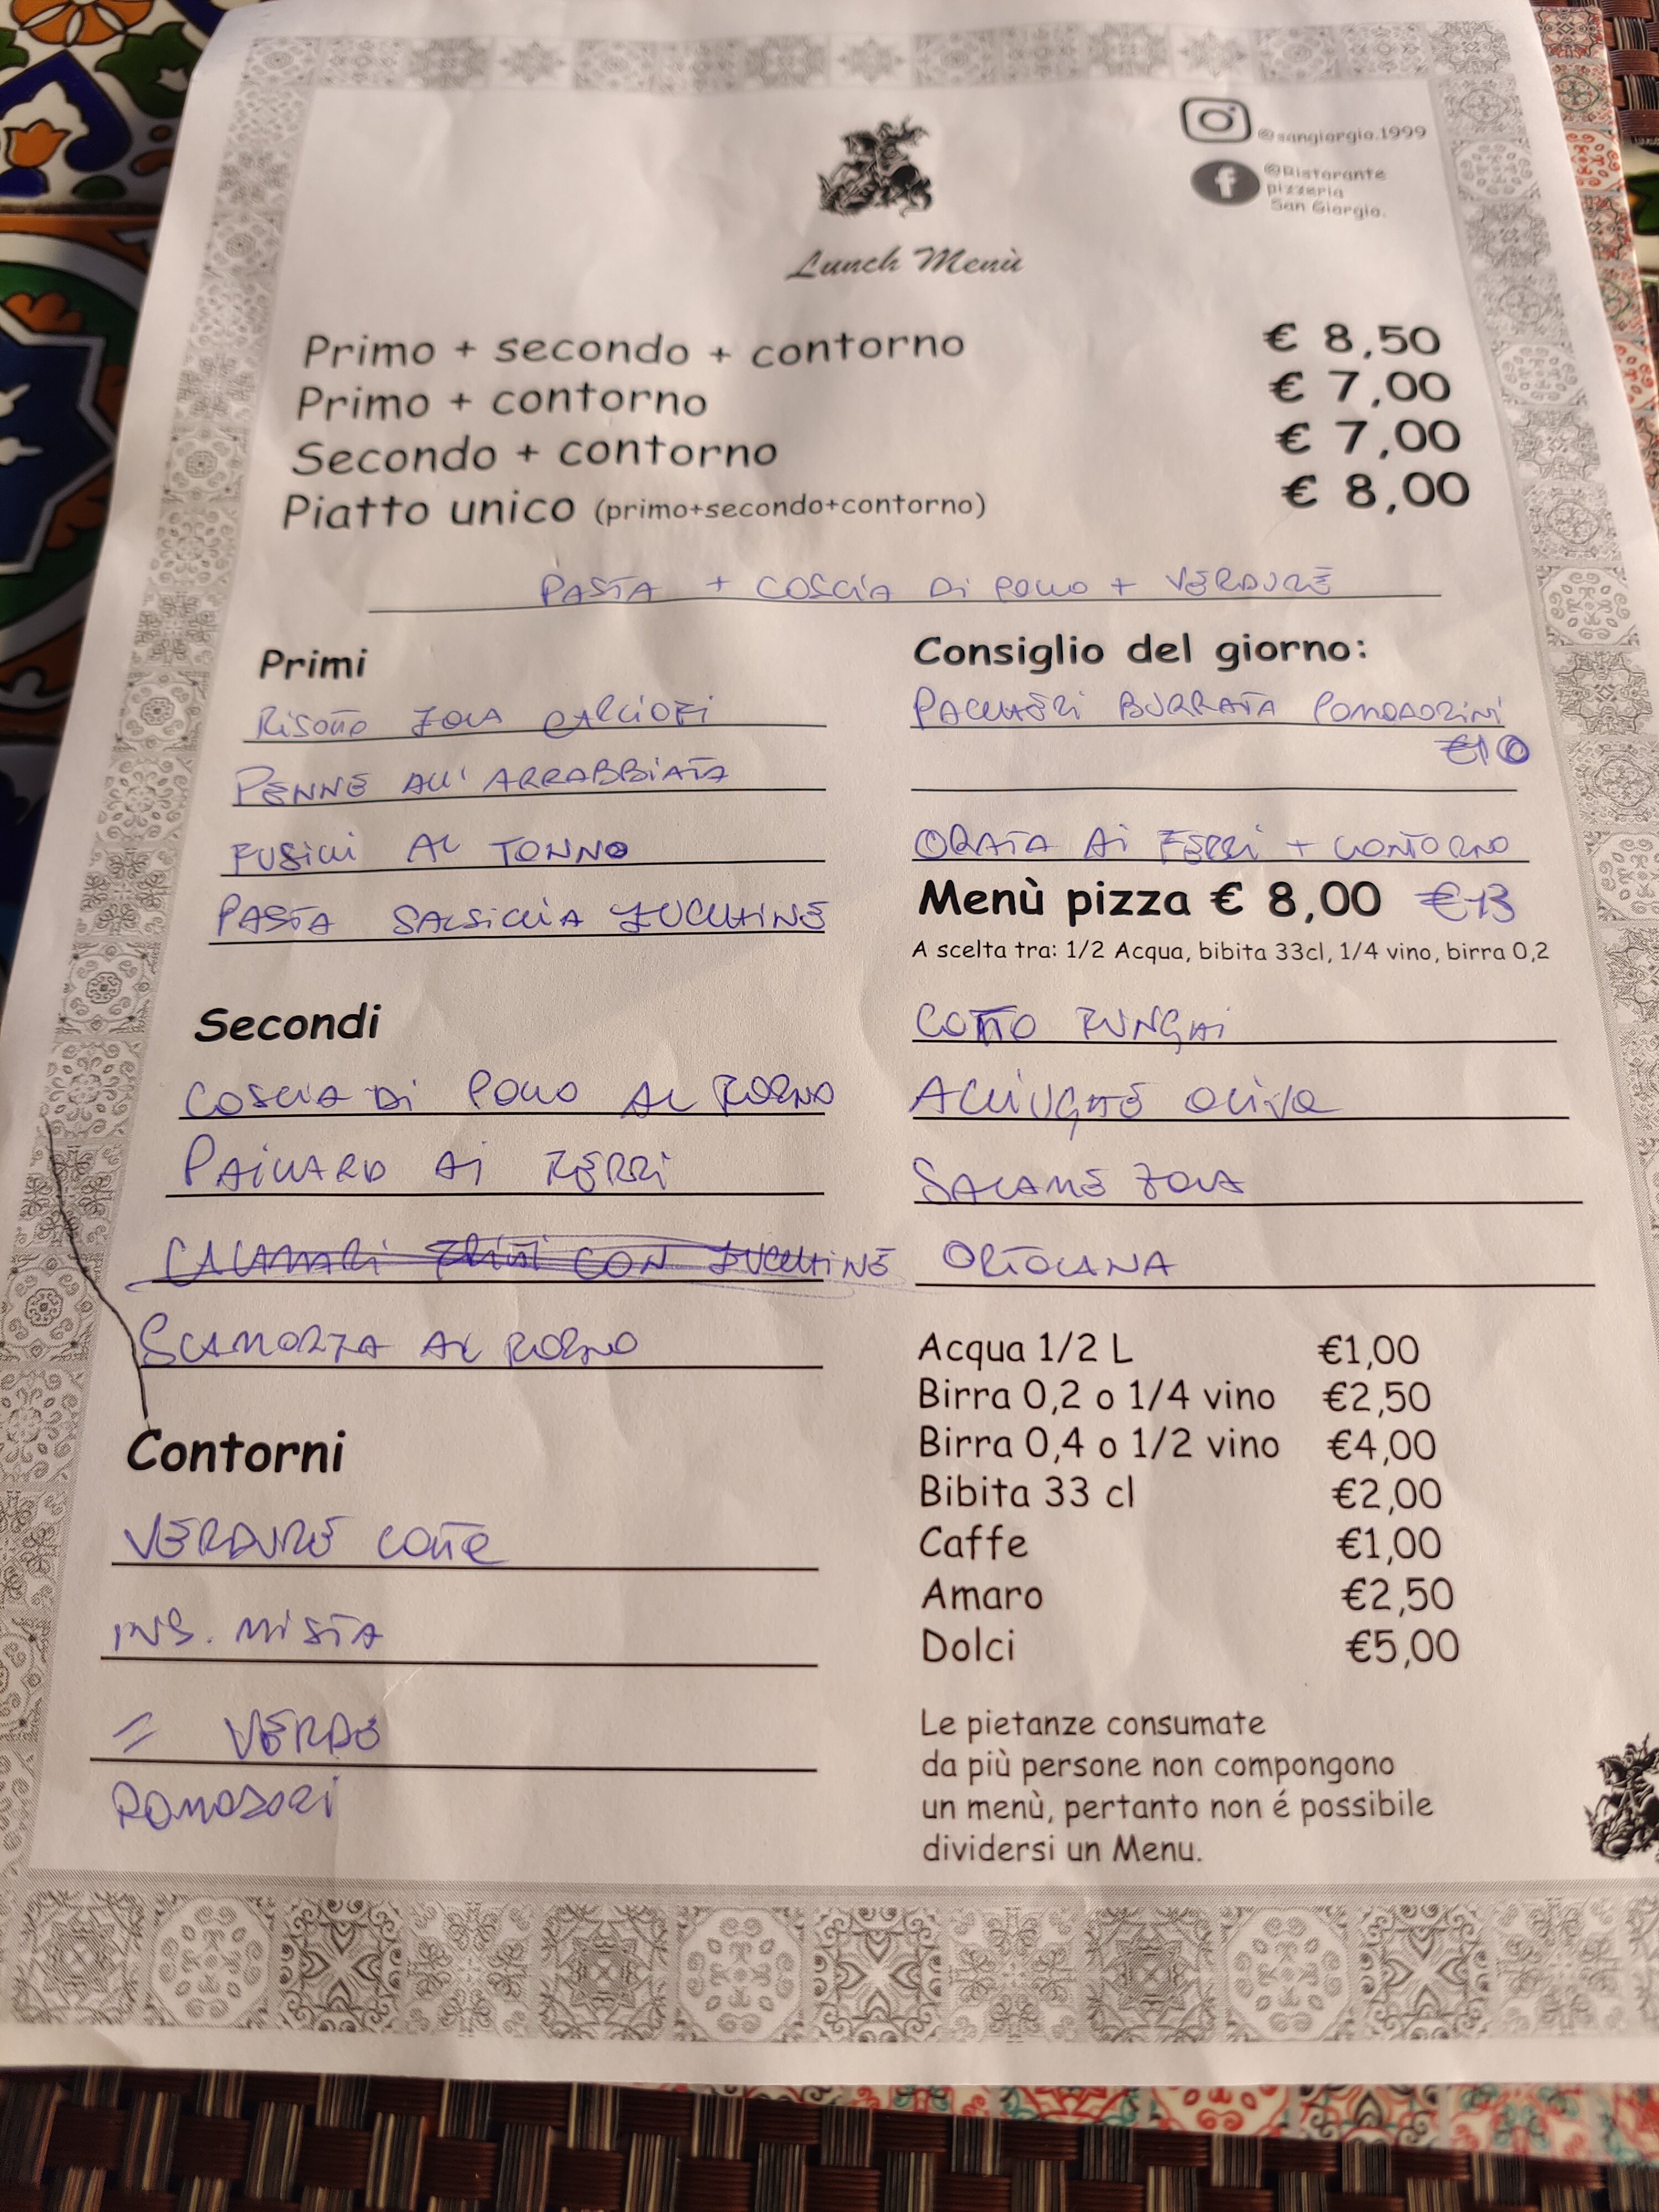 @sangiorgio.1999
@Ristorante
pizzeria
San Giorgio.
Lunch Menù
Primo + secondo + contorno € 8,50
Primo + contorno € 7,00
Secondo + contorno € 7,00
Piatto unico (primo+secondo+contorno) € 8,00
PASTA + COSCIA DI POLLO + VERDURE
Primi
RISOTTO ZOLA CARCIOFI
PENNE ALL'ARRABBIATA
FUSILLI AL TONNO
PASTA SALSICCIA ZUCCHINE
Secondi
COSCIA DI POLLO AL FORNO
PAILLARD AI FERRI
CALAMARI FRITTI CON ZUCCHINE
SCAMORZA AL FORNO
Contorni
VERDURE COTTE
INS. MISTA
= VERDE
POMODORI
Consiglio del giorno:
PACCHERI BURRATA POMODORINI
€10
ORATA AI FERRI + CONTORNO
Menù pizza € 8,00 €13
A scelta tra: 1/2 Acqua, bibita 33cl, 1/4 vino, birra 0,2
COTTO FUNGHI
ACCIUGHE OLIVE
SALAME ZOLA
ORTOLANA
Acqua 1/2 L €1,00
Birra 0,2 o 1/4 vino €2,50
Birra 0,4 o 1/2 vino €4,00
Bibita 33 cl €2,00
Caffe €1,00
Amaro €2,50
Dolci €5,00
Le pietanze consumate
da più persone non compongono
un menù, pertanto non é possibile
dividersi un Menu.